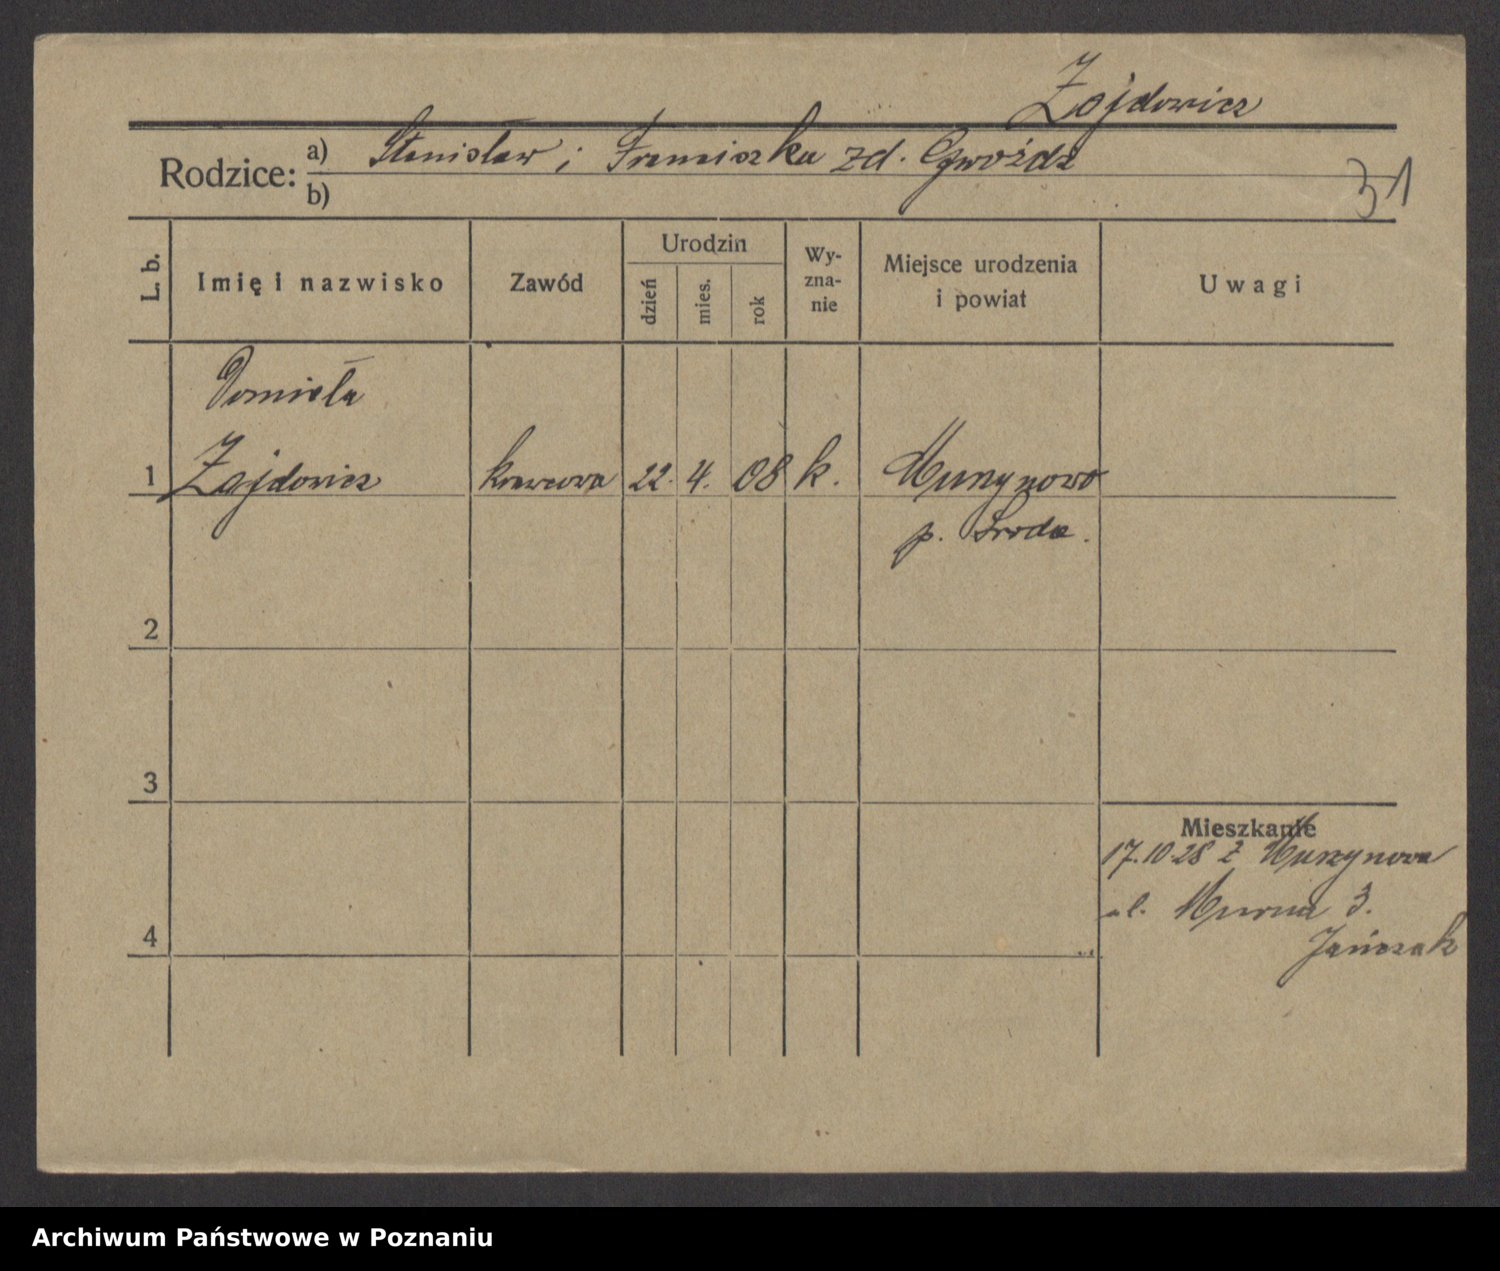 Zajdowicz
Rodzice: a) Stanisław i Franciszka zd. Gwoźdz
b)
31
L. b.
Imię i nazwisko
Zawód
Urodzin
dzień
mies.
rok
Wy-
zna-
nie
Miejsce urodzenia
i powiat
Uwagi
Domicela
1 Zajdowicz krawcowa 22. 4. 08 k. Murzynowo
p. Środa.
2
3
Mieszkanie
17.10.28 z Murzynowa
ul. Murna 3.
Jańczak
4
Archiwum Państwowe w Poznaniu